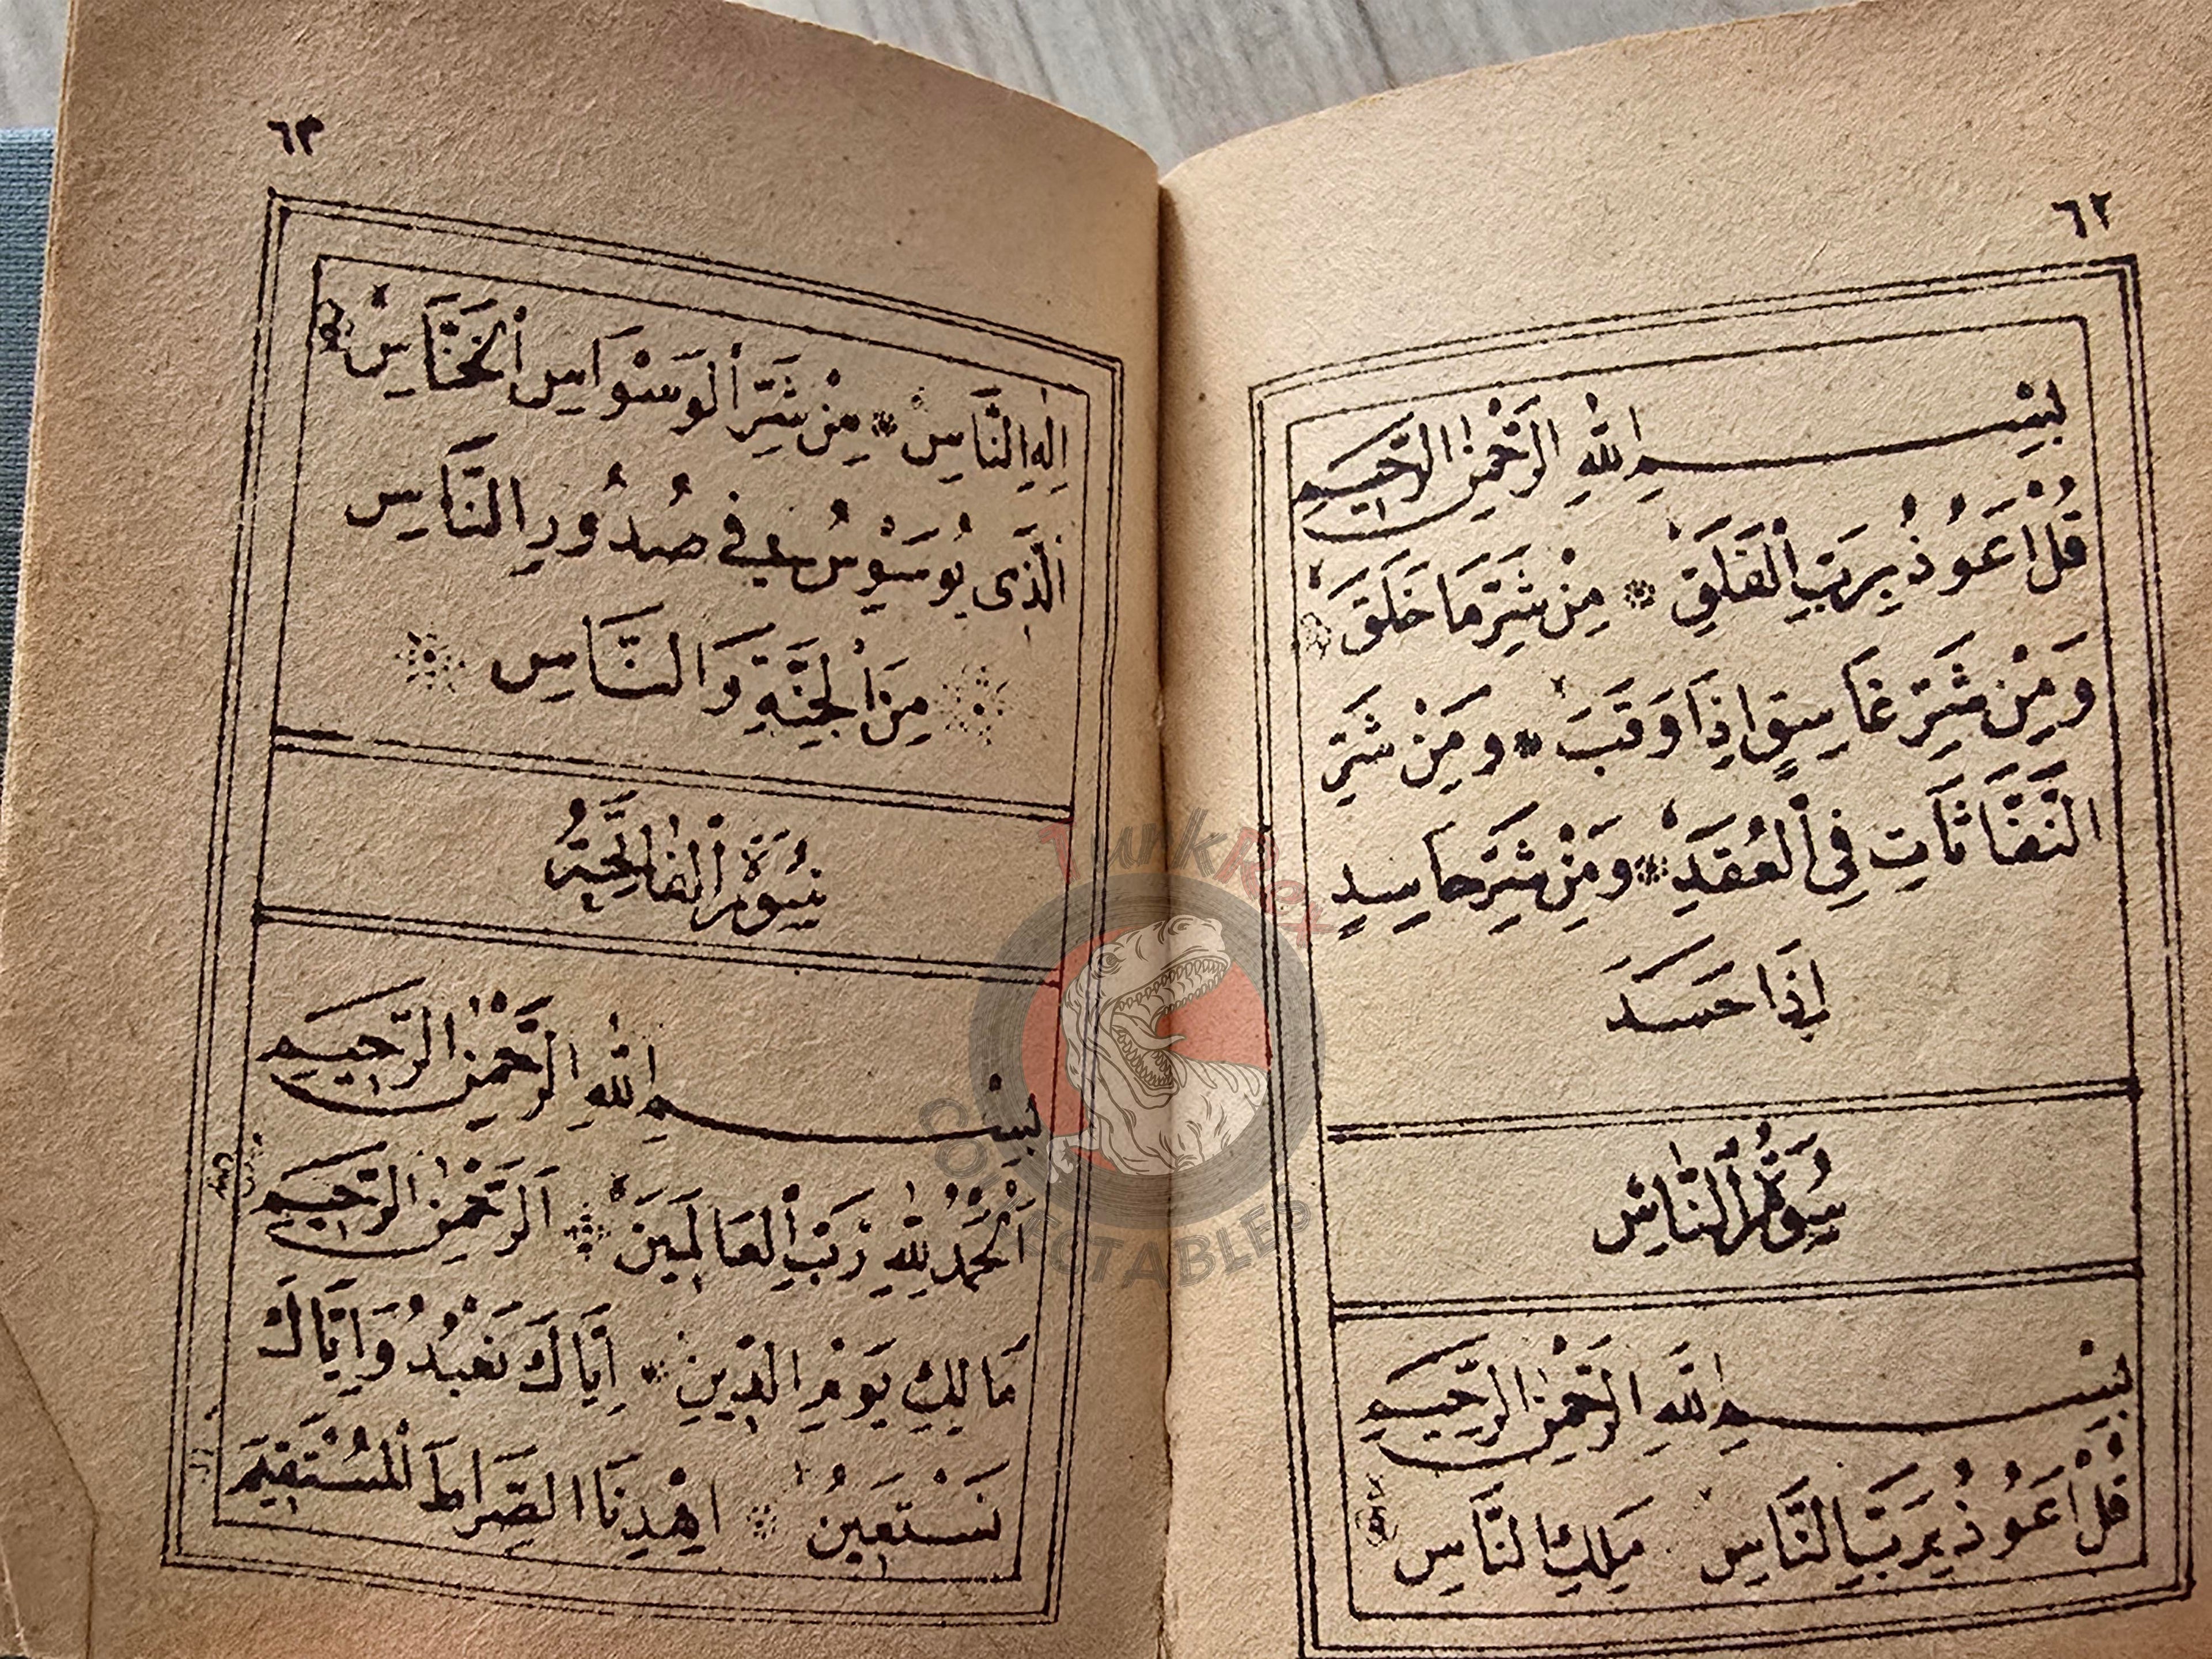 ٦٢
بِسْمِ اللّٰهِ الرَّحْمٰنِ الرَّحِيمِ
قُلْ اَعُوذُ بِرَبِّ الْفَلَقِ مِنْ شَرِّ مَا خَلَقَ
وَمِنْ شَرِّ غَاسِقٍ اِذَا وَقَبَ وَمِنْ شَرِّ
النَّفَّاثَاتِ فِى الْعُقَدِ وَمِنْ شَرِّ حَاسِدٍ
اِذَا حَسَدَ
سُورَةُ النَّاسِ
بِسْمِ اللّٰهِ الرَّحْمٰنِ الرَّحِيمِ
قُلْ اَعُوذُ بِرَبِّ النَّاسِ مَلِكِ النَّاسِ
٦٣
اِلٰهِ النَّاسِ مِنْ شَرِّ الْوَسْوَاسِ الْخَنَّاسِ
اَلَّذِى يُوَسْوِسُ فِى صُدُورِ النَّاسِ
مِنَ الْجِنَّةِ وَالنَّاسِ
سُورَةُ الْفَاتِحَةِ
بِسْمِ اللّٰهِ الرَّحْمٰنِ الرَّحِيمِ
اَلْحَمْدُ لِلّٰهِ رَبِّ الْعَالَمِينَ اَلرَّحْمٰنِ الرَّحِيمِ
مَالِكِ يَوْمِ الدِّينِ اِيَّاكَ نَعْبُدُ وَاِيَّاكَ
نَسْتَعِينُ اِهْدِنَا الصِّرَاطَ الْمُسْتَقِيمَ
TurkRex
COLLECTABLES